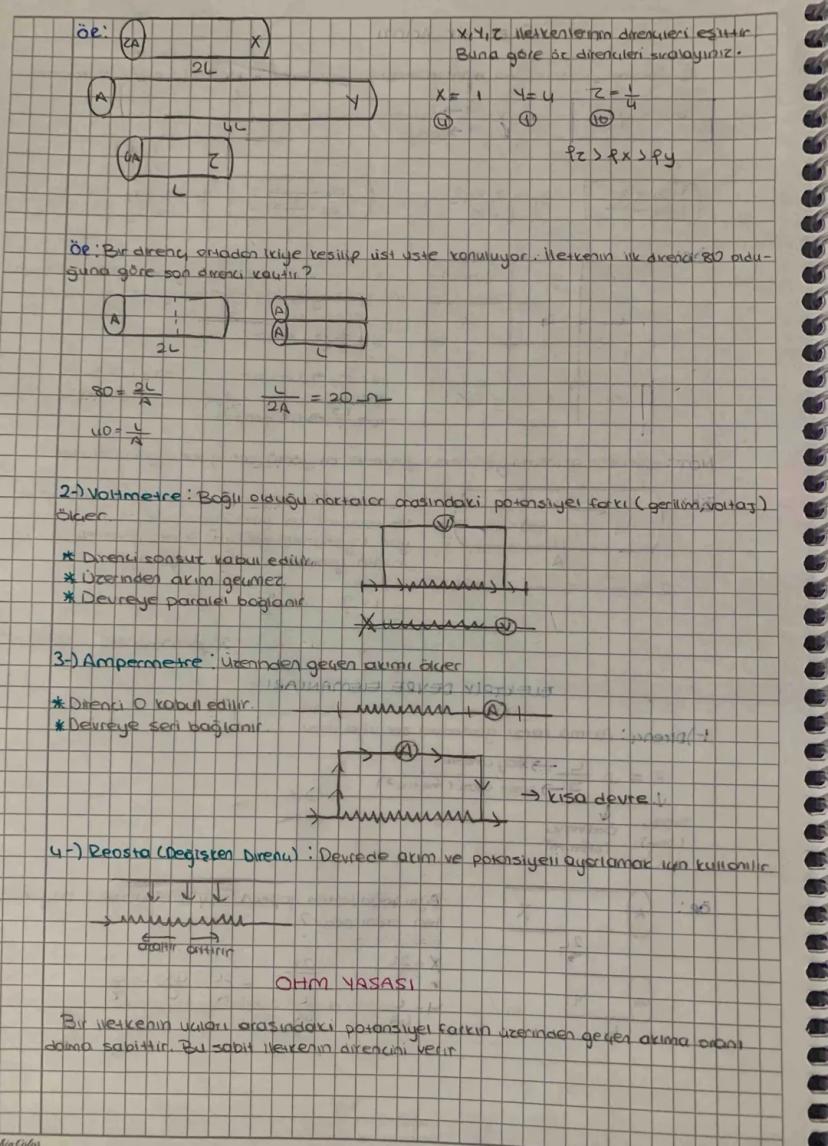 ÖR: 2A X
2L
X,Y,Z iletkenlerinin dirençleri eşittir
Buna göre öz dirençleri sıralayınız.
A Y
4L
X= 1 Y=4 Z=1/4
4 1 16
4A Z
L
ρz > ρx > ρy
ÖR: Bir direnç ortadan ikiye kesilip üst üste konuluyor. İletkenin ilk direnci 80 oldu-
ğuna göre son direnci kaçtır?
A
2L
A
A
L
80 = 2L/A
L/2A = 20 Ω
40 = L/A
2-) Voltmetre: Bağlı olduğu noktalar arasındaki potansiyel farkı (gerilim, voltaj)
ölçer.
V
* Direnci sonsuz kabul edilir.
* Üzerinden akım geçmez
* Devreye paralel bağlanır
V
3-) Ampermetre: Üzerinden geçen akımı ölçer
* Direnci 0 kabul edilir.
A
* Devreye seri bağlanır
A
→ kısa devre
4-) Reosta (Değişken Direnç): Devrede akım ve potansiyeli ayarlamak için kullanılır
azaltır arttırır
OHM YASASI
Bir iletkenin uçları arasındaki potansiyel farkın üzerinden geçen akıma oranı
daima sabittir. Bu sabit iletkenin direncini verir